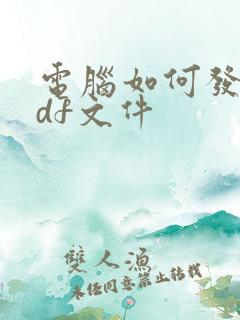 電腦如何發
df文件
雙人漁
未经同意禁止转载